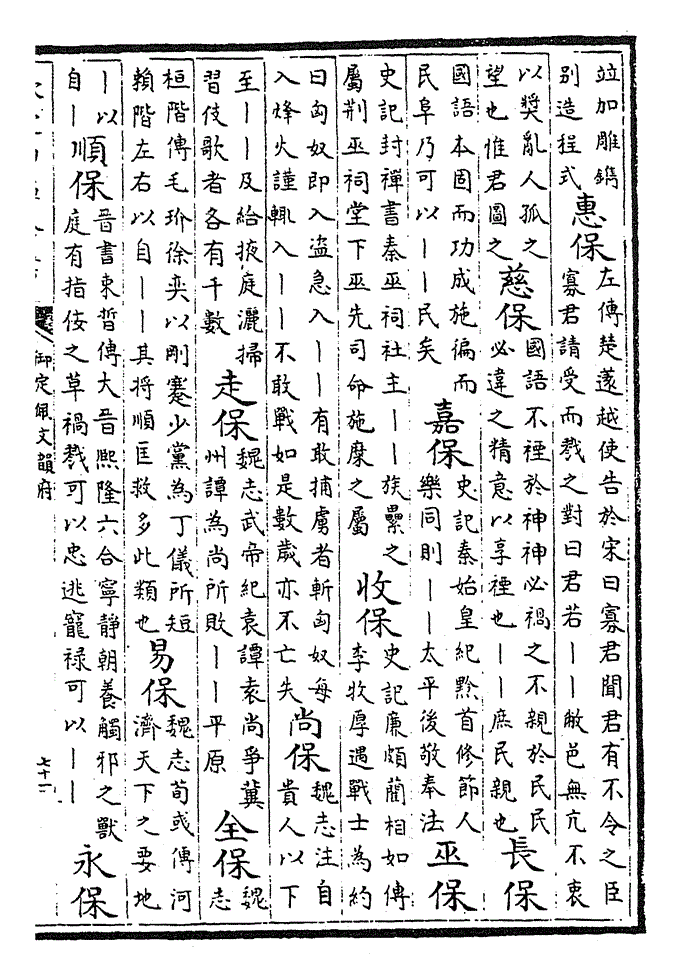 竝加雕鐫
别造程式
惠保
左傳楚薳越使告於宋曰寡君聞君有不令之臣
寡君請受而戮之對曰君若丨丨敝邑無亢不衷
以奬亂人孤之
望也惟君圖之
慈保
國語不禋於神神必禍之不親於民民
必違之精意以享禋也丨丨庶民親也
長保
國語本固而功成施徧而
民阜乃可以丨丨民矣
嘉保
史記秦始皇紀黔首修節人
樂同則丨丨太平後敬奉法
巫保
史記封禪書秦巫祠社主丨丨族纍之
屬荆巫祠堂下巫先司命施糜之屬
收保
史記廉頗藺相如傳
李牧厚遇戰士為約
曰匈奴即入盜急入丨丨有敢捕虜者斬匈奴每
入烽火謹輒入丨丨不敢戰如是數歲亦不亡失
尚保
魏志注自
貴人以下
至丨丨及給掖庭灑掃
習伎歌者各有千數
走保
魏志武帝紀袁譚袁尚爭冀
州譚為尚所敗丨丨平原
全保
魏
志
桓階傳毛玠徐奕以剛蹇少黨為丁儀所短
賴階左右以自丨丨其將順匡救多此類也
易保
魏志荀彧傳河
濟天下之要地
丨以
自丨
順保
晉書束晳傳大晉熙隆六合寧靜朝養觸邪之獸
庭有指佞之草禍戮可以忠逃寵禄可以丨丨
永保
御定佩文韻府